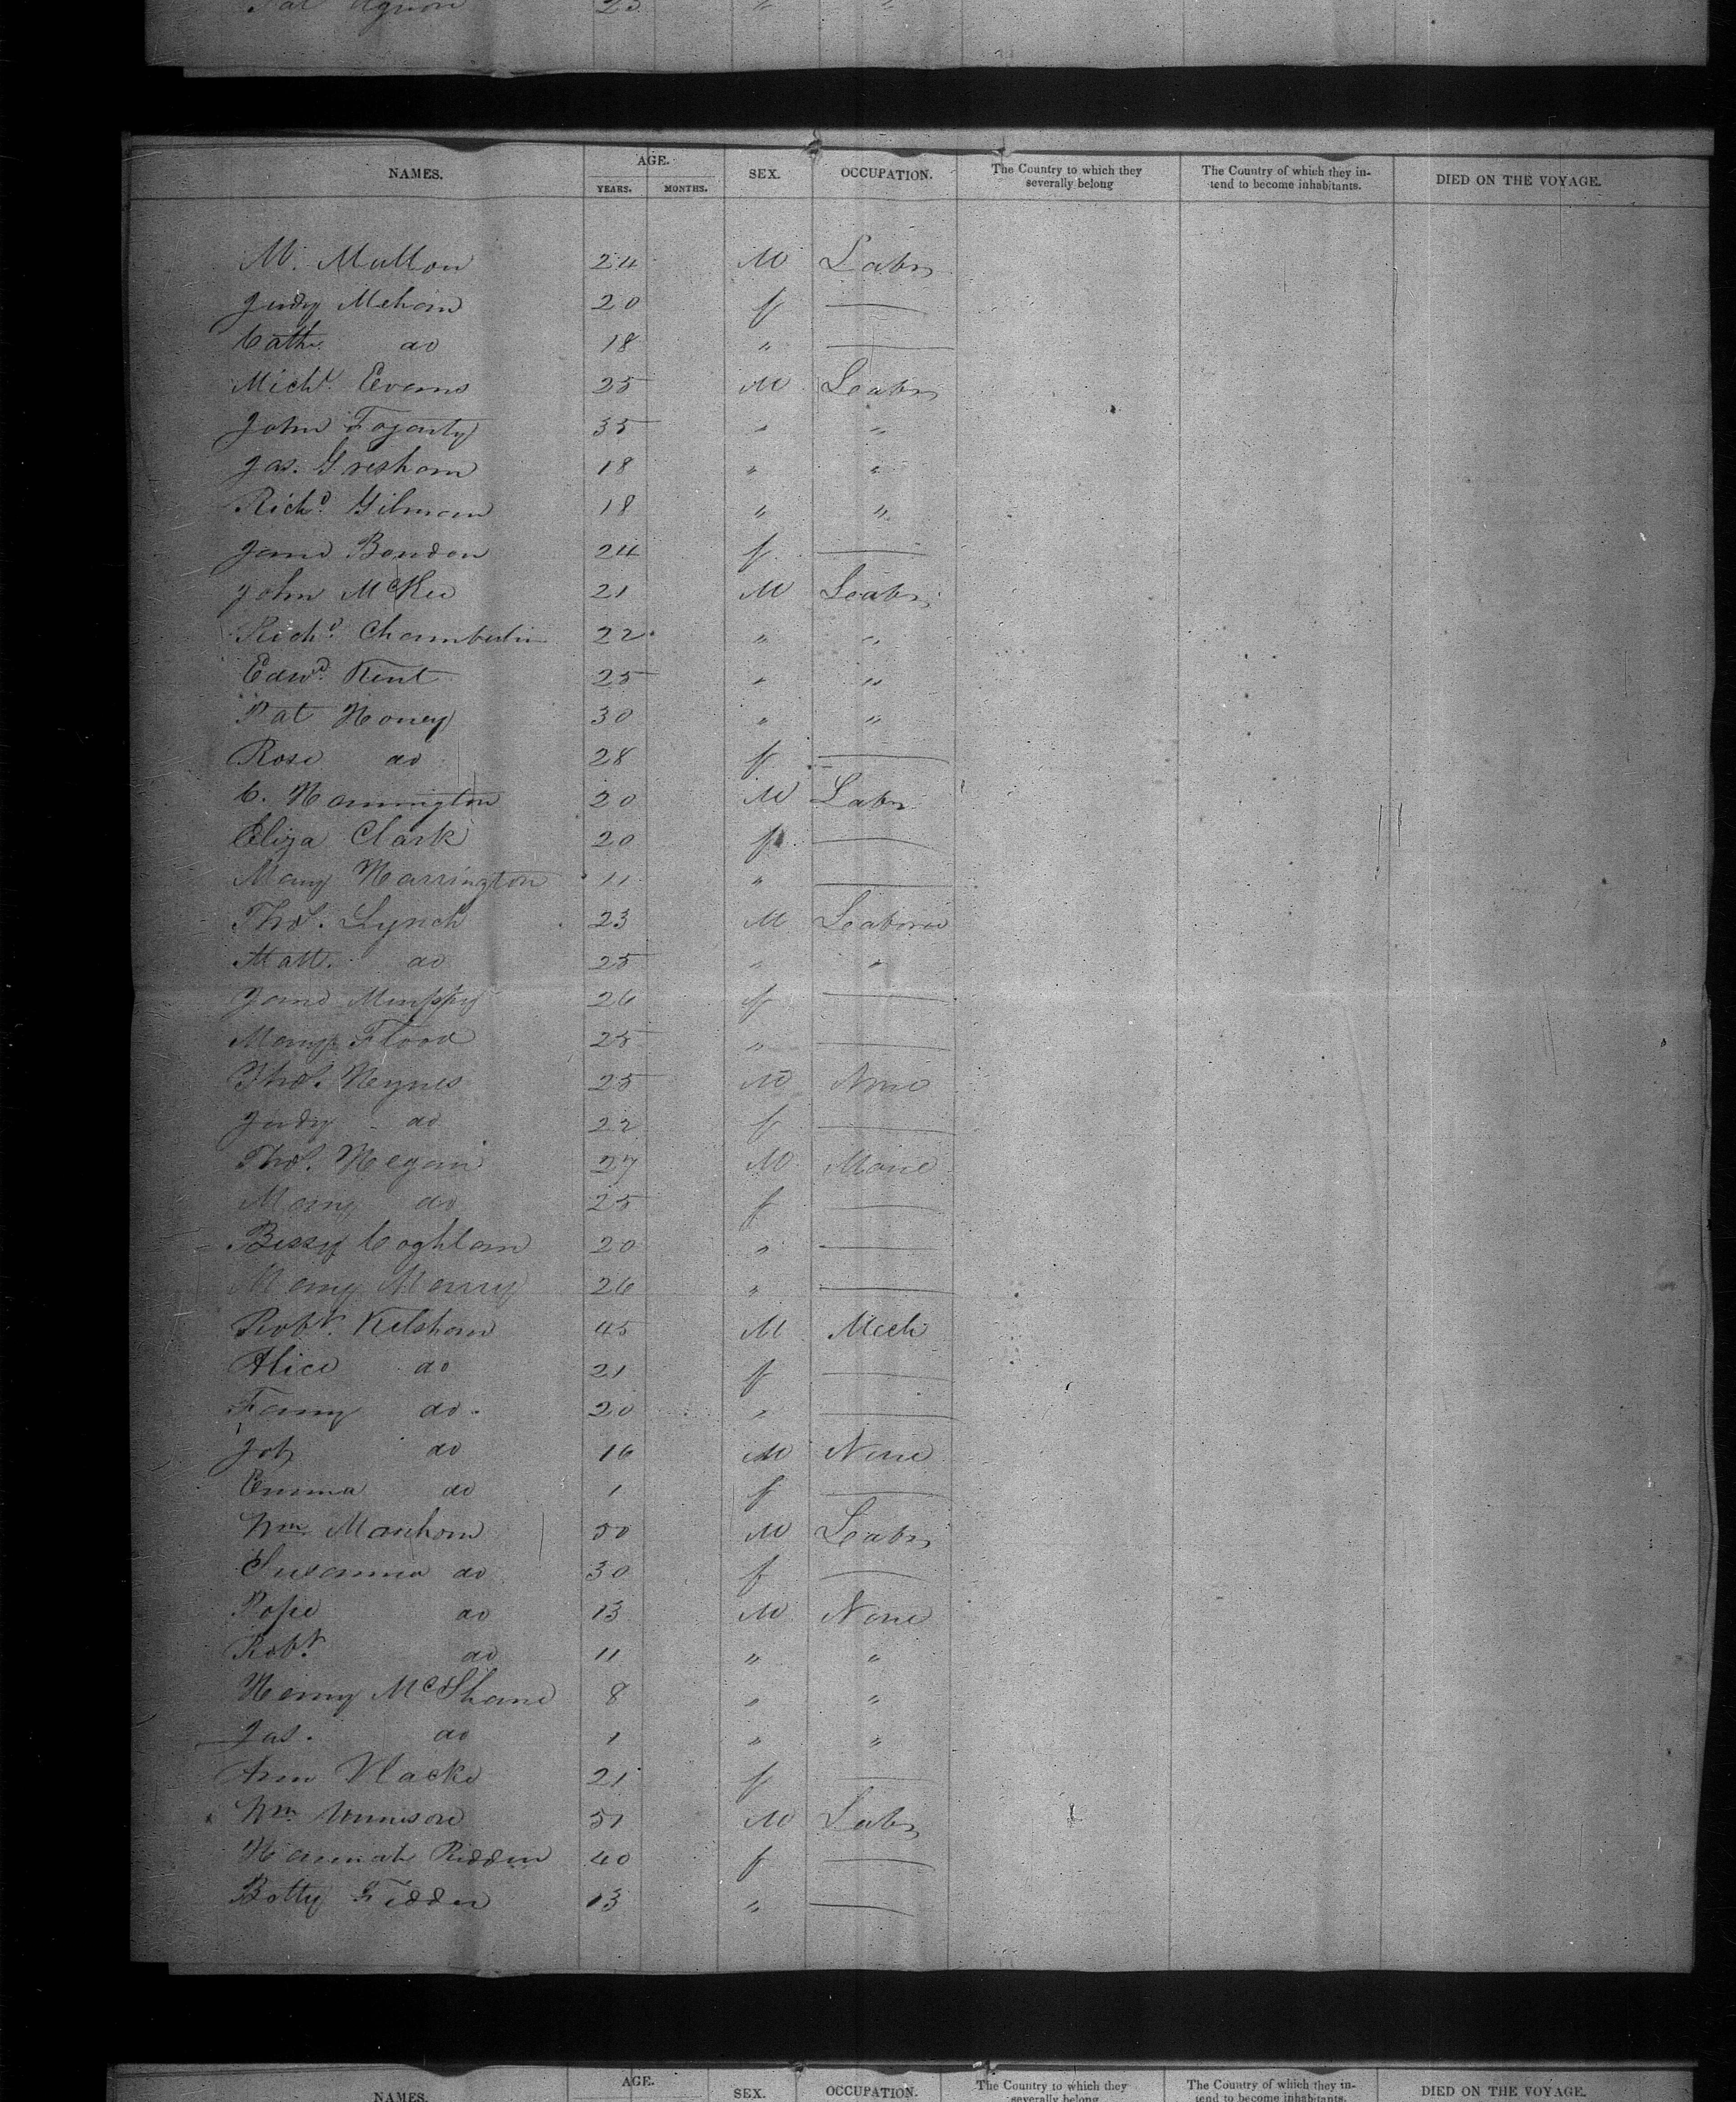 Pat 23 " "
NAMES. AGE. YEARS. MONTHS. SEX. OCCUPATION. The Country to which they severally belong The Country of which they in-tend to become inhabitants. DIED ON THE VOYAGE.
M. Mullon 24 M Labr
Judy Mehan 20 f —
Cathe do 18 " —
Michl Evans 25 M Labr
John Fogarty 35 " "
Jas. Gresham 18 " "
Richd Gilman 18 " "
Jane Bondon 24 f —
John McKee 21 M Labr
Richd Chamberlin 22 " "
Edwd Kent 25 " "
Pat Honey 30 " "
Rose do 28 f —
C. Hannington 20 M Labr
Eliza Clark 20 f —
Mary Harrington 11 " —
Thos. Lynch 23 M Laborer
Matt. do 25 " "
Jane Murphy 26 f —
Mary Flood 25 " —
Thos. Heynes 25 M None
Judy do 22 f —
Thos. Hegan 27 M None
Mary do 25 f —
Bessy Coghlan 20 " —
Mary Murry 26 " —
Robt. Kelsham 45 M Mech
Alice do 21 f —
Fanny do 20 " —
Job do 16 M None
Emma do 1 f —
Wm Marsham 50 M Labr
Susanna do 30 f —
Pope do 13 M None
Robt. do 11 " "
Henry McShane 8 " "
Jas. do 1 " "
Ann 21 f —
Wm 51 M Labr
Hannah Ridden 40 f —
Betty 13 " —
NAMES. AGE. SEX. OCCUPATION. The Country to which they severally belong The Country of which they in-tend to become inhabitants. DIED ON THE VOYAGE.